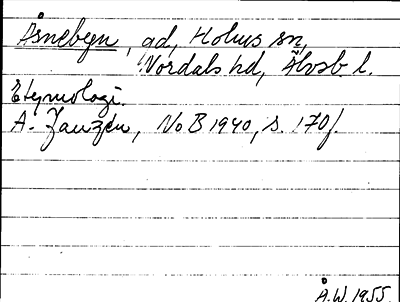 Åsnebyn, gd, Holms sn,
Nordals hd, Älvsb l.
Etymologi.
A. Janzén, NoB 1940, s. 170f.
Å.W. 1955.